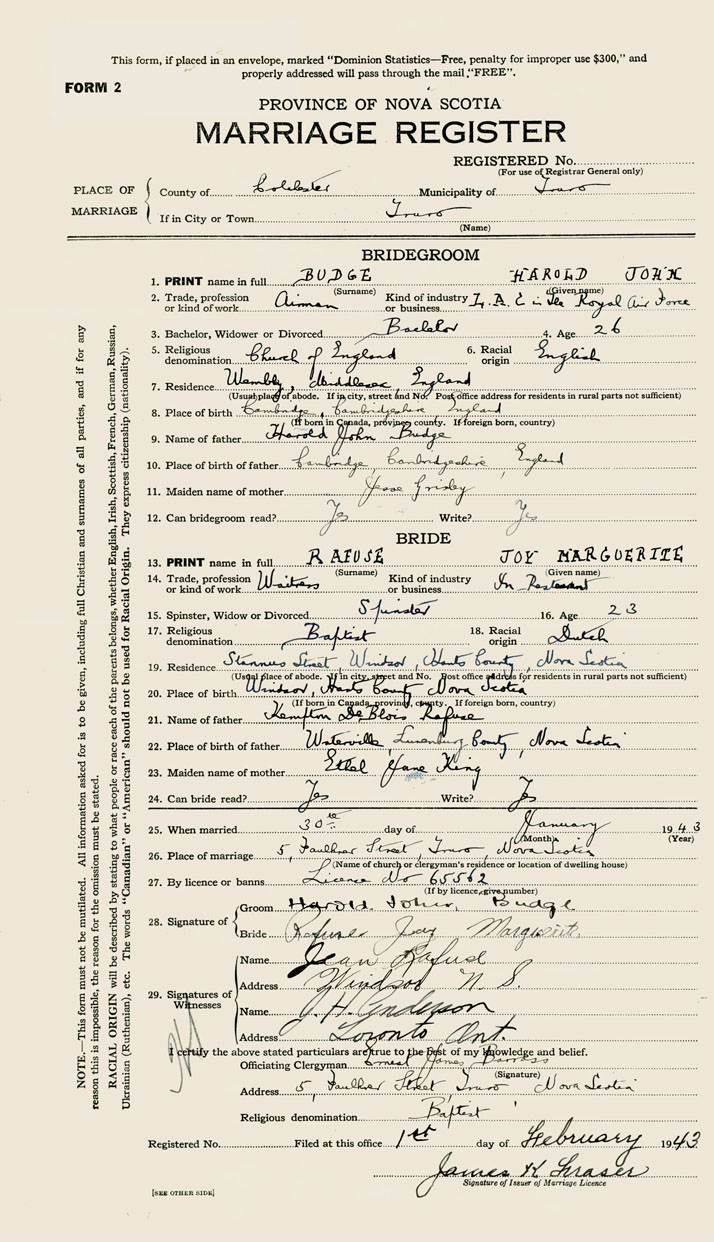 This form, if placed in an envelope, marked "Dominion Statistics—Free, penalty for improper use $300," and
properly addressed will pass through the mail "FREE".
FORM 2
PROVINCE OF NOVA SCOTIA
MARRIAGE REGISTER
REGISTERED No.
(For use of Registrar General only)
PLACE OF MARRIAGE
County of Colchester Municipality of Truro
If in City or Town Truro
(Name)
BRIDEGROOM
1. PRINT name in full BUDGE HAROLD JOHN
(Surname) (Given name)
2. Trade, profession or kind of work Airman Kind of industry or business L.A.C in the Royal Air Force
3. Bachelor, Widower or Divorced Bachelor 4. Age 26
5. Religious denomination Church of England 6. Racial origin English
7. Residence Wembly, Middlesex, England
(Usual place of abode. If in city, street and No. Post office address for residents in rural parts not sufficient)
8. Place of birth Cambridge, Cambridgeshire England
(If born in Canada, province, county. If foreign born, country)
9. Name of father Harold John Budge
10. Place of birth of father Cambridge, Cambridgeshire, England
11. Maiden name of mother Jesse
12. Can bridegroom read? Yes Write? Yes
BRIDE
13. PRINT name in full RAFUSE JOY MARGUERITE
(Surname) (Given name)
14. Trade, profession or kind of work Waitress Kind of industry or business In Restaurant
15. Spinster, Widow or Divorced Spinster 16. Age 23
17. Religious denomination Baptist 18. Racial origin Dutch
19. Residence Stannus Street, Windsor, Hants County, Nova Scotia
(Usual place of abode. If in city, street and No. Post office address for residents in rural parts not sufficient)
20. Place of birth Windsor, Hants County Nova Scotia
(If born in Canada, province, county. If foreign born, country)
21. Name of father Kempton DeBlois Rafuse
22. Place of birth of father Waterville, Lunenburg County, Nova Scotia
23. Maiden name of mother Ethel Jane King
24. Can bride read? Yes Write? Yes
25. When married 30th day of January 1943
(Month) (Year)
26. Place of marriage 5, Faulkner Street, Truro, Nova Scotia
(Name of church or clergyman's residence or location of dwelling house)
27. By licence or banns Licence No 65562
(If by licence, give number)
28. Signature of
Groom Harold John Budge
Bride Rafuse Joy Marguerite
29. Signatures of Witnesses
Name Jean Rafuse
Address Windsor N. S.
Name J. H. Anderson
Address Toronto Ont.
I certify the above stated particulars are true to the best of my knowledge and belief.
Officiating Clergyman Ernest James Barrass
(Signature)
Address 5, Faulkner Street, Truro Nova Scotia
Religious denomination Baptist
Registered No. Filed at this office 1st day of February 1943
James K Fraser
Signature of Issuer of Marriage Licence
[SEE OTHER SIDE]
NOTE.—This form must not be mutilated. All information asked for is to be given, including full Christian and surnames of all parties, and if for any
reason this is impossible, the reason for the omission must be stated.
RACIAL ORIGIN will be described by stating to what people or race each of the parents belongs, whether English, Irish, Scottish, French, German, Russian,
Ukrainian (Ruthenian), etc. The words "Canadian" or "American" should not be used for Racial Origin. They express citizenship (nationality).